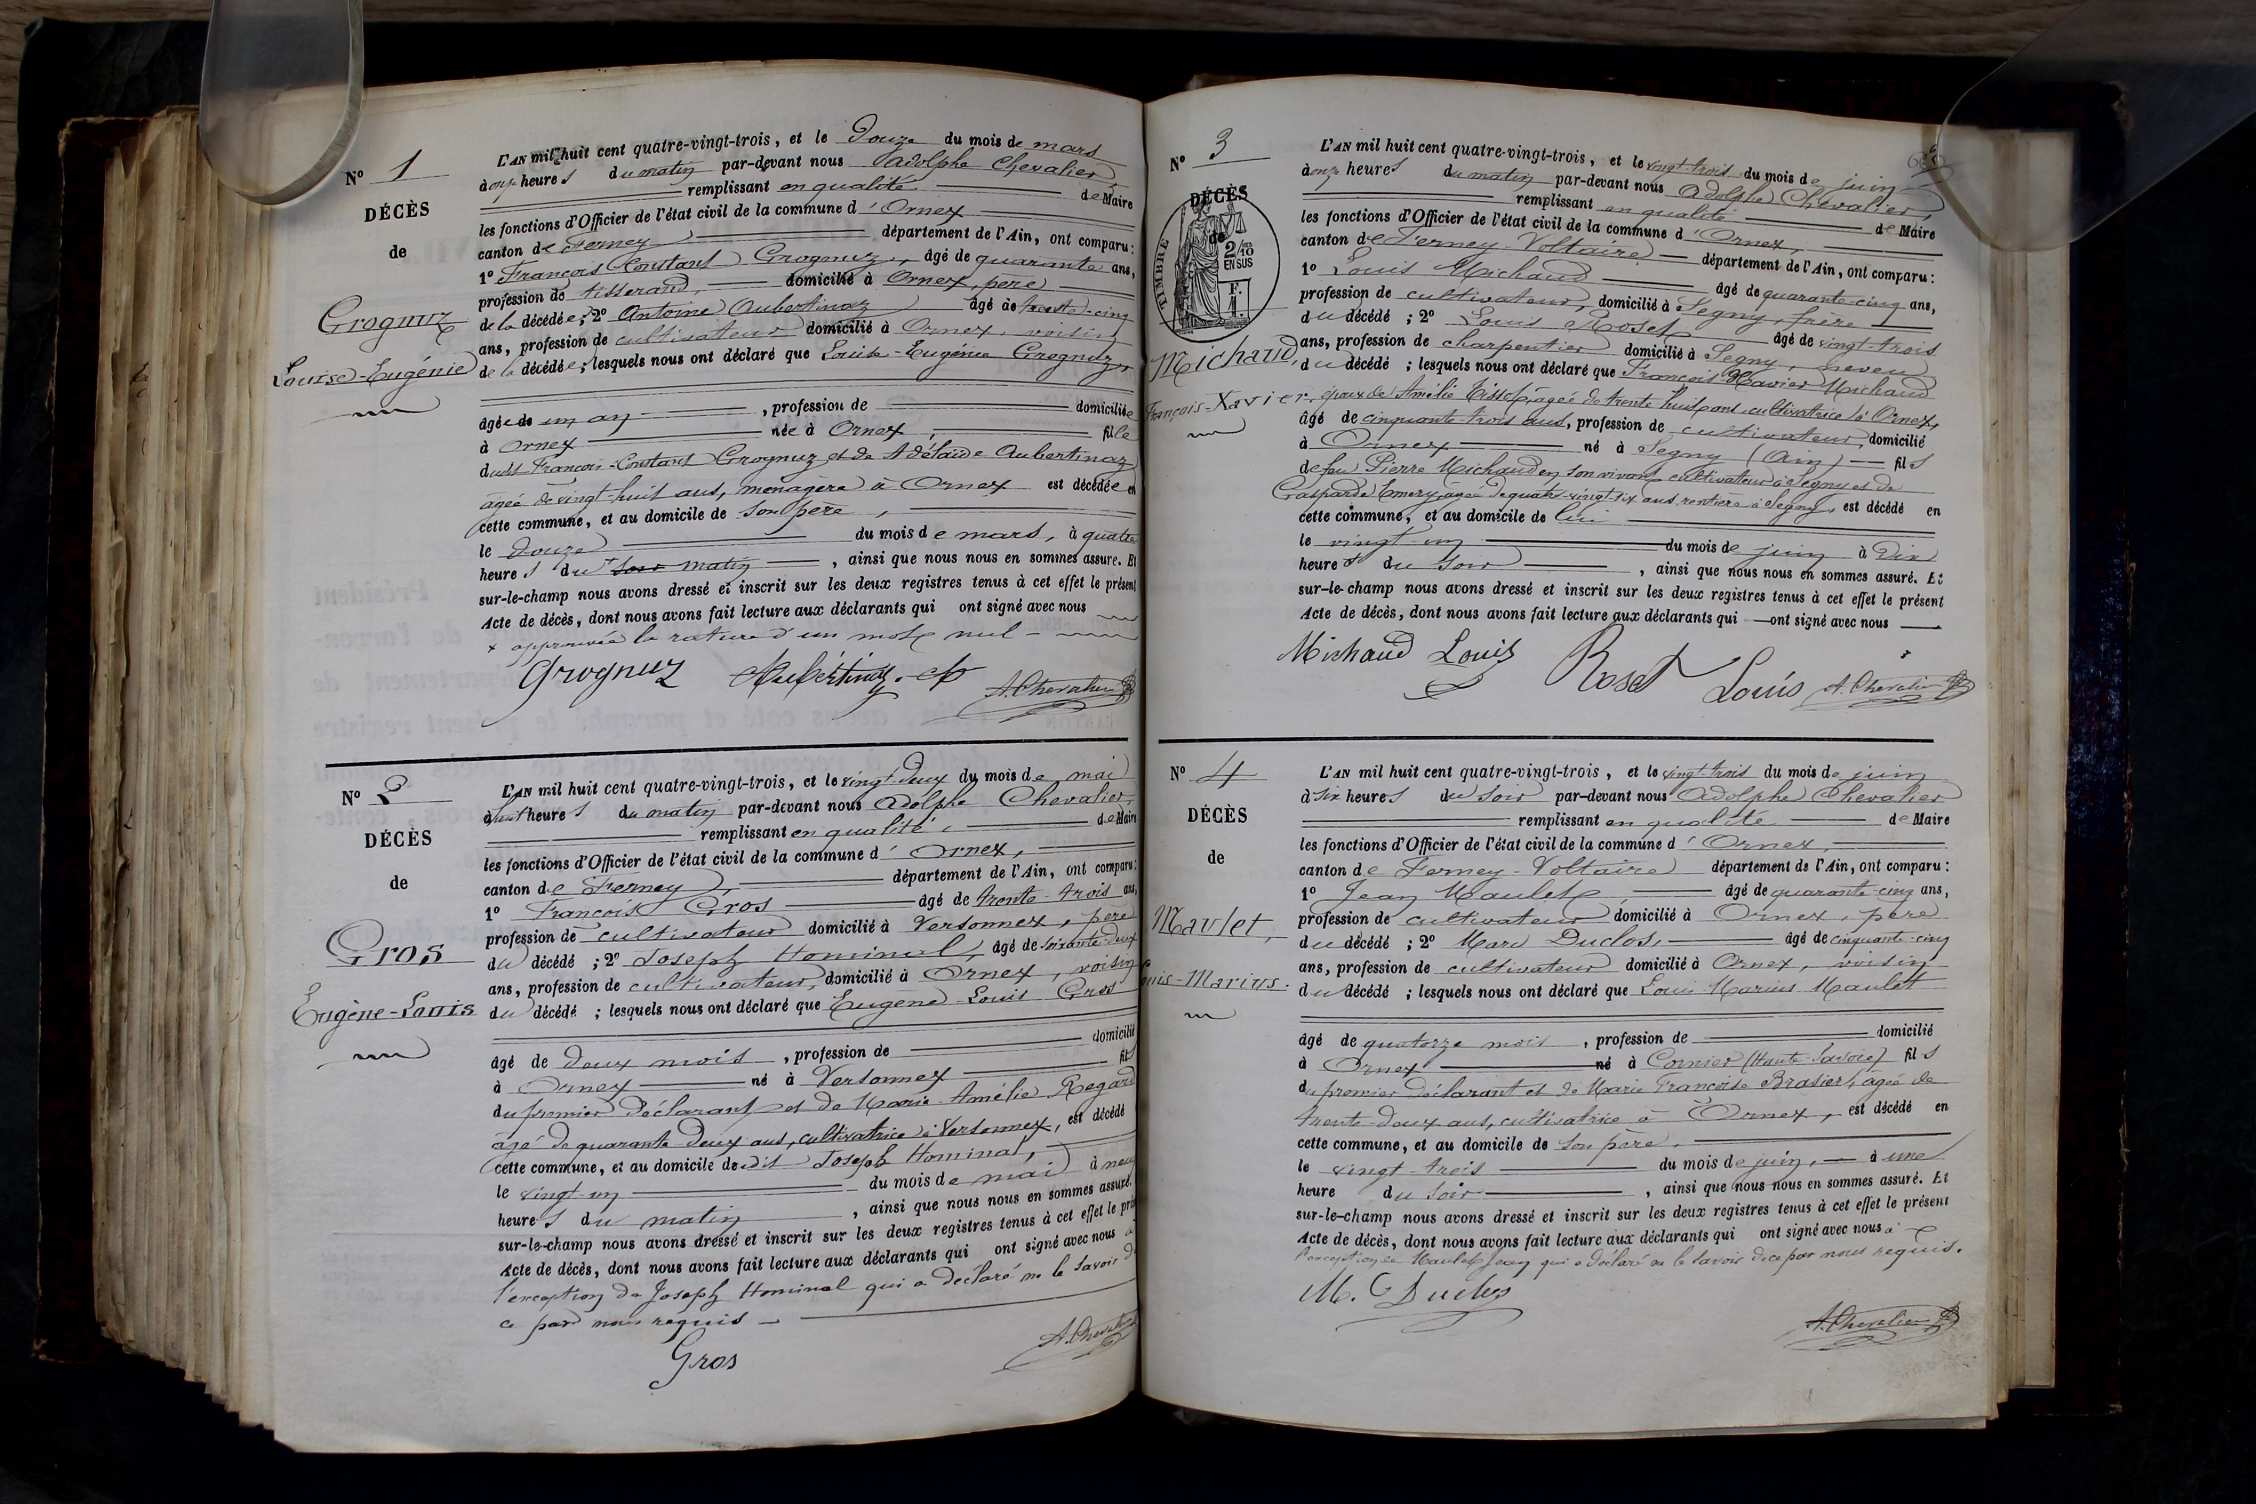 N° 1
DÉCÈS
de
Grognuz
Louise-Eugénie
L'AN mil huit cent quatre-vingt-trois, et le Douze du mois de mars
à onze heures du matin par-devant nous Adolphe Chevalier,
remplissant en qualité de Maire
les fonctions d'Officier de l'état civil de la commune d'Ornex
canton de Ferney département de l'Ain, ont comparu :
1° François Constant Grognuz, âgé de quarante ans,
profession de tisserand, domicilié à Ornex, père
de la décédée ; 2° Antoine Aubertinaz âgé de trente-cinq
ans, profession de cultivateur domicilié à Ornex, voisin
de la décédée ; lesquels nous ont déclaré que Louise-Eugénie Grognuz,
âgée de un an , profession de domiciliée
à Ornex née à Ornex, fille
dudit François-Constant Grognuz et de Adélaïde Aubertinaz
âgée de vingt-huit ans, ménagère à Ornex est décédée en
cette commune, et au domicile de son père,
le douze du mois de mars, à quatre
heures du soir matin , ainsi que nous nous en sommes assuré. Et
sur-le-champ nous avons dressé et inscrit sur les deux registres tenus à cet effet le présent
Acte de décès, dont nous avons fait lecture aux déclarants qui ont signé avec nous
x approuvée la rature d'un mot nul
Grognuz Aubertinaz A. Chevalier
N° 2
DÉCÈS
de
Gros
Eugène-Louis
L'AN mil huit cent quatre-vingt-trois, et le vingt-deux du mois de mai
à huit heures du matin par-devant nous Adolphe Chevalier,
remplissant en qualité, de Maire
les fonctions d'Officier de l'état civil de la commune d'Ornex,
canton de Ferney, département de l'Ain, ont comparu :
1° François Gros âgé de trente-trois ans,
profession de cultivateur domicilié à Versonnex, père
du décédé ; 2° Joseph Hominal, âgé de soixante-deux
ans, profession de cultivateur, domicilié à Ornex, voisin
du décédé ; lesquels nous ont déclaré que Eugène Louis Gros
âgé de deux mois , profession de domicilié
à Ornex né à Versonnex fils
du premier déclarant et de Marie Amélie Regard
âgé de quarante-deux ans, cultivatrice à Versonnex, est décédé
cette commune, et au domicile dudit Joseph Hominal,
le vingt-un du mois de mai à neuf
heures du matin , ainsi que nous nous en sommes assuré.
sur-le-champ nous avons dressé et inscrit sur les deux registres tenus à cet effet le
Acte de décès, dont nous avons fait lecture aux déclarants qui ont signé avec nous à
l'exception de Joseph Hominal qui a déclaré ne le savoir de
ce par nous requis
Gros A. Chevalier
N° 3
DÉCÈS
de
TIMBRE
2/10
EN SUS
F.
1.
Michaud,
François-Xavier,
L'AN mil huit cent quatre-vingt-trois, et le vingt-trois du mois de juin
à onze heures du matin par-devant nous Adolphe Chevalier,
remplissant en qualité de Maire
les fonctions d'Officier de l'état civil de la commune d'Ornex,
canton de Ferney-Voltaire département de l'Ain, ont comparu :
1° Louis Michaud âgé de quarante-cinq ans,
profession de cultivateur, domicilié à Segny, frère
du décédé ; 2° Louis Roset âgé de vingt-trois
ans, profession de charpentier domicilié à Segny, neveu
du décédé ; lesquels nous ont déclaré que François Xavier Michaud
époux de Amélie Tissot, âgée de trente huit ans cultivatrice à Ornex,
âgé de cinquante trois ans, profession de cultivateur, domicilié
à Ornex né à Segny (Ain) fils
de feu Pierre Michaud en son vivant cultivateur à Segny et de
Gasparde Emery âgée de quatre-vingt-six ans rentière à Segny, est décédé en
cette commune, et au domicile de lui
le vingt-un du mois de juin à Dix
heures du soir , ainsi que nous nous en sommes assuré. Et
sur-le-champ nous avons dressé et inscrit sur les deux registres tenus à cet effet le présent
Acte de décès, dont nous avons fait lecture aux déclarants qui ont signé avec nous
Michaud Louis Roset Louis A. Chevalier
N° 4
DÉCÈS
de
Maulet,
Louis-Marius.
L'AN mil huit cent quatre-vingt-trois, et le vingt-trois du mois de juin
à six heures du soir par-devant nous Adolphe Chevalier
remplissant en qualité de Maire
les fonctions d'Officier de l'état civil de la commune d'Ornex,
canton de Ferney-Voltaire département de l'Ain, ont comparu :
1° Jean Maulet, âgé de quarante-cinq ans,
profession de cultivateur domicilié à Ornex, père
du décédé ; 2° Marc Duclos, âgé de cinquante-cinq
ans, profession de cultivateur domicilié à Ornex, voisin
du décédé ; lesquels nous ont déclaré que Louis Marius Maulet
âgé de quatorze mois , profession de domicilié
à Ornex né à Cornier (Haute-Savoie) fils
du premier déclarant et de Marie Françoise Brasier, âgée de
trente-deux ans, cultivatrice à Ornex, est décédé en
cette commune, et au domicile de son père,
le vingt-trois du mois de juin, à une
heure du soir , ainsi que nous nous en sommes assuré. Et
sur-le-champ nous avons dressé et inscrit sur les deux registres tenus à cet effet le présent
Acte de décès, dont nous avons fait lecture aux déclarants qui ont signé avec nous à
l'exception de Maulet Jean qui a déclaré ne le savoir de ce par nous requis.
M. C Duclos
A. Chevalier